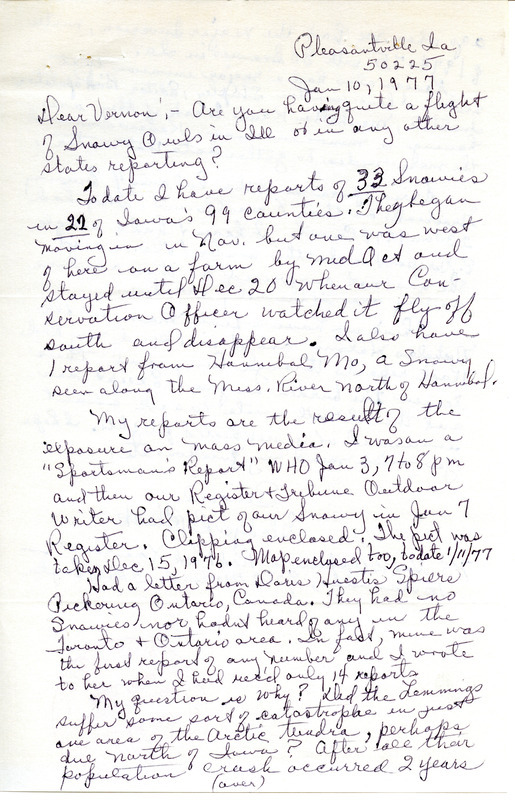 Pleasantville Ia
50225
Jan 10, 1977
Dear Vernon; - Are you having quite a flight
of Snowy Owls in Ill or in any other
states reporting?
To date I have reports of 33 Snowies
in 22 of Iowa's 99 counties. They began
moving in in Nov. but one was west
of here on a farm by mid Oct and
stayed until Dec 20 when our Con-
servation Officer watched it fly off
south and disappear. I also have
1 report from Hannibal Mo, a Snowy
seen along the Miss. River north of Hannibal.
My reports are the result of the
exposure on mass media. I was on a
"Sportsman's Report" WHO Jan 3, 7 to 8 pm
and then our Register & Tribune Outdoor
Writer had pict of our Snowy in Jan 7
Register. Clipping enclosed. The pict was
taken Dec 15, 1976. Map enclosed too, to date 1/11/77
Had a letter from Doris Huestis Speirs
Pickering Ontario, Canada. They had no
Snowies nor hadn't heard of any in the
Toronto & Ontario area. In fact, mine was
the first report of any number and I wrote
to her when I had rec'd only 14 reports
My question is why? Did the Lemmings
suffer some sort of catastrophe in just
one area of the Arctic tundra, perhaps
due north of Iowa? After all their
population crash occurred 2 years
(over)